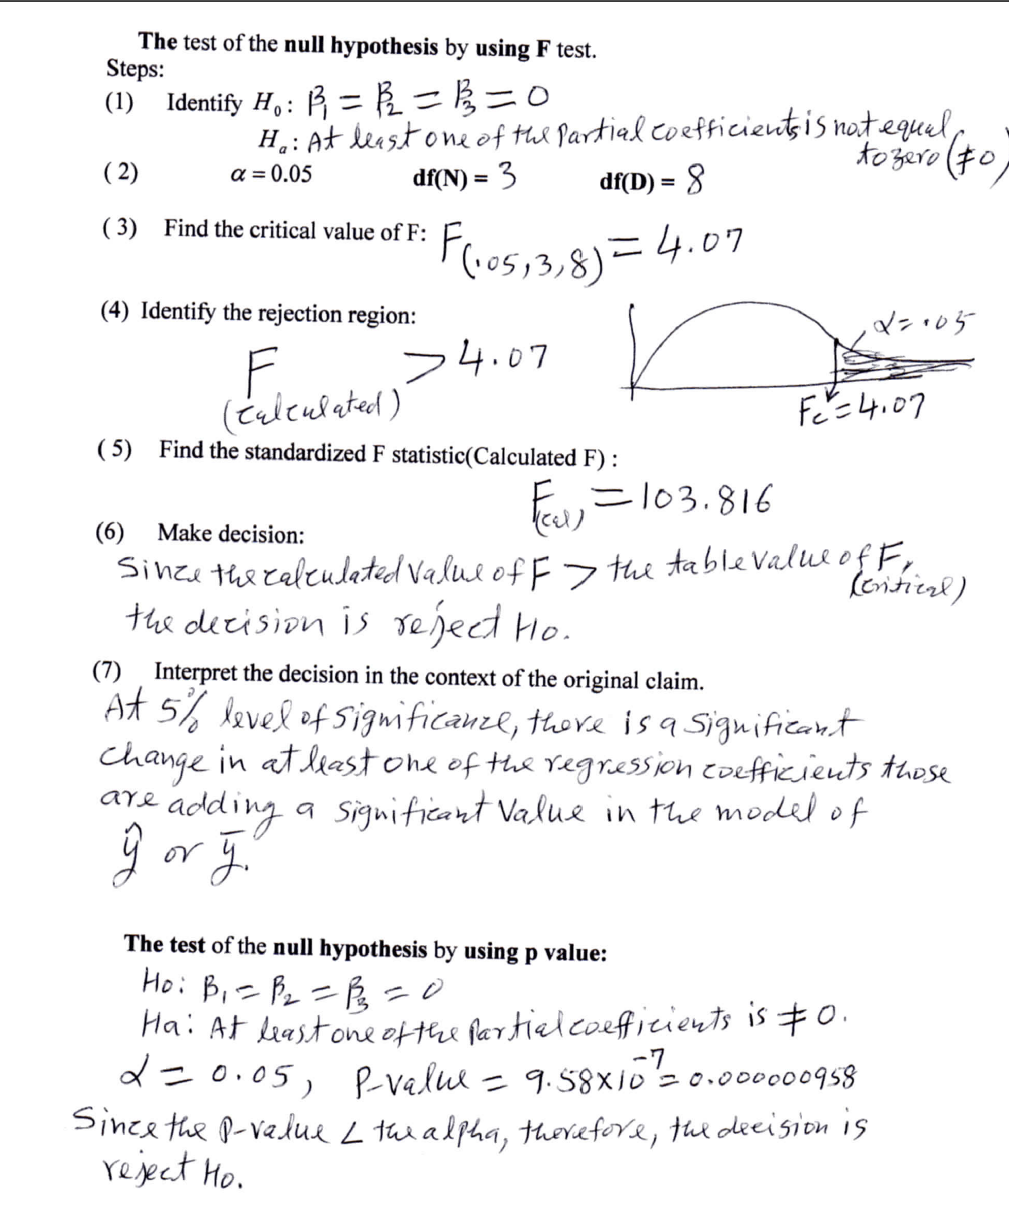 The test of the null hypothesis by using F test.
Steps:
(1) Identify H₀: β₁ = β₂ = β₃ = 0
Hₐ: At least one of the partial coefficients is not equal to zero (≠0)
(2) α = 0.05 df(N) = 3 df(D) = 8
(3) Find the critical value of F: F(.05,3,8) = 4.07
(4) Identify the rejection region:
α = .05
F (calculated) > 4.07
Fc = 4.07
(5) Find the standardized F statistic(Calculated F) :
F(cal) = 103.816
(6) Make decision:
Since the calculated value of F > the table value of F, (critical)
the decision is reject Ho.
(7) Interpret the decision in the context of the original claim.
At 5% level of significance, there is a significant
change in at least one of the regression coefficients those
are adding a significant value in the model of
ŷ or ȳ.
The test of the null hypothesis by using p value:
Ho: β₁ = β₂ = β₃ = 0
Ha: At least one of the partial coefficients is ≠ 0.
α = 0.05, P-value = 9.58×10⁻⁷ = 0.000000958
Since the P-value < the alpha, therefore, the decision is
reject Ho.